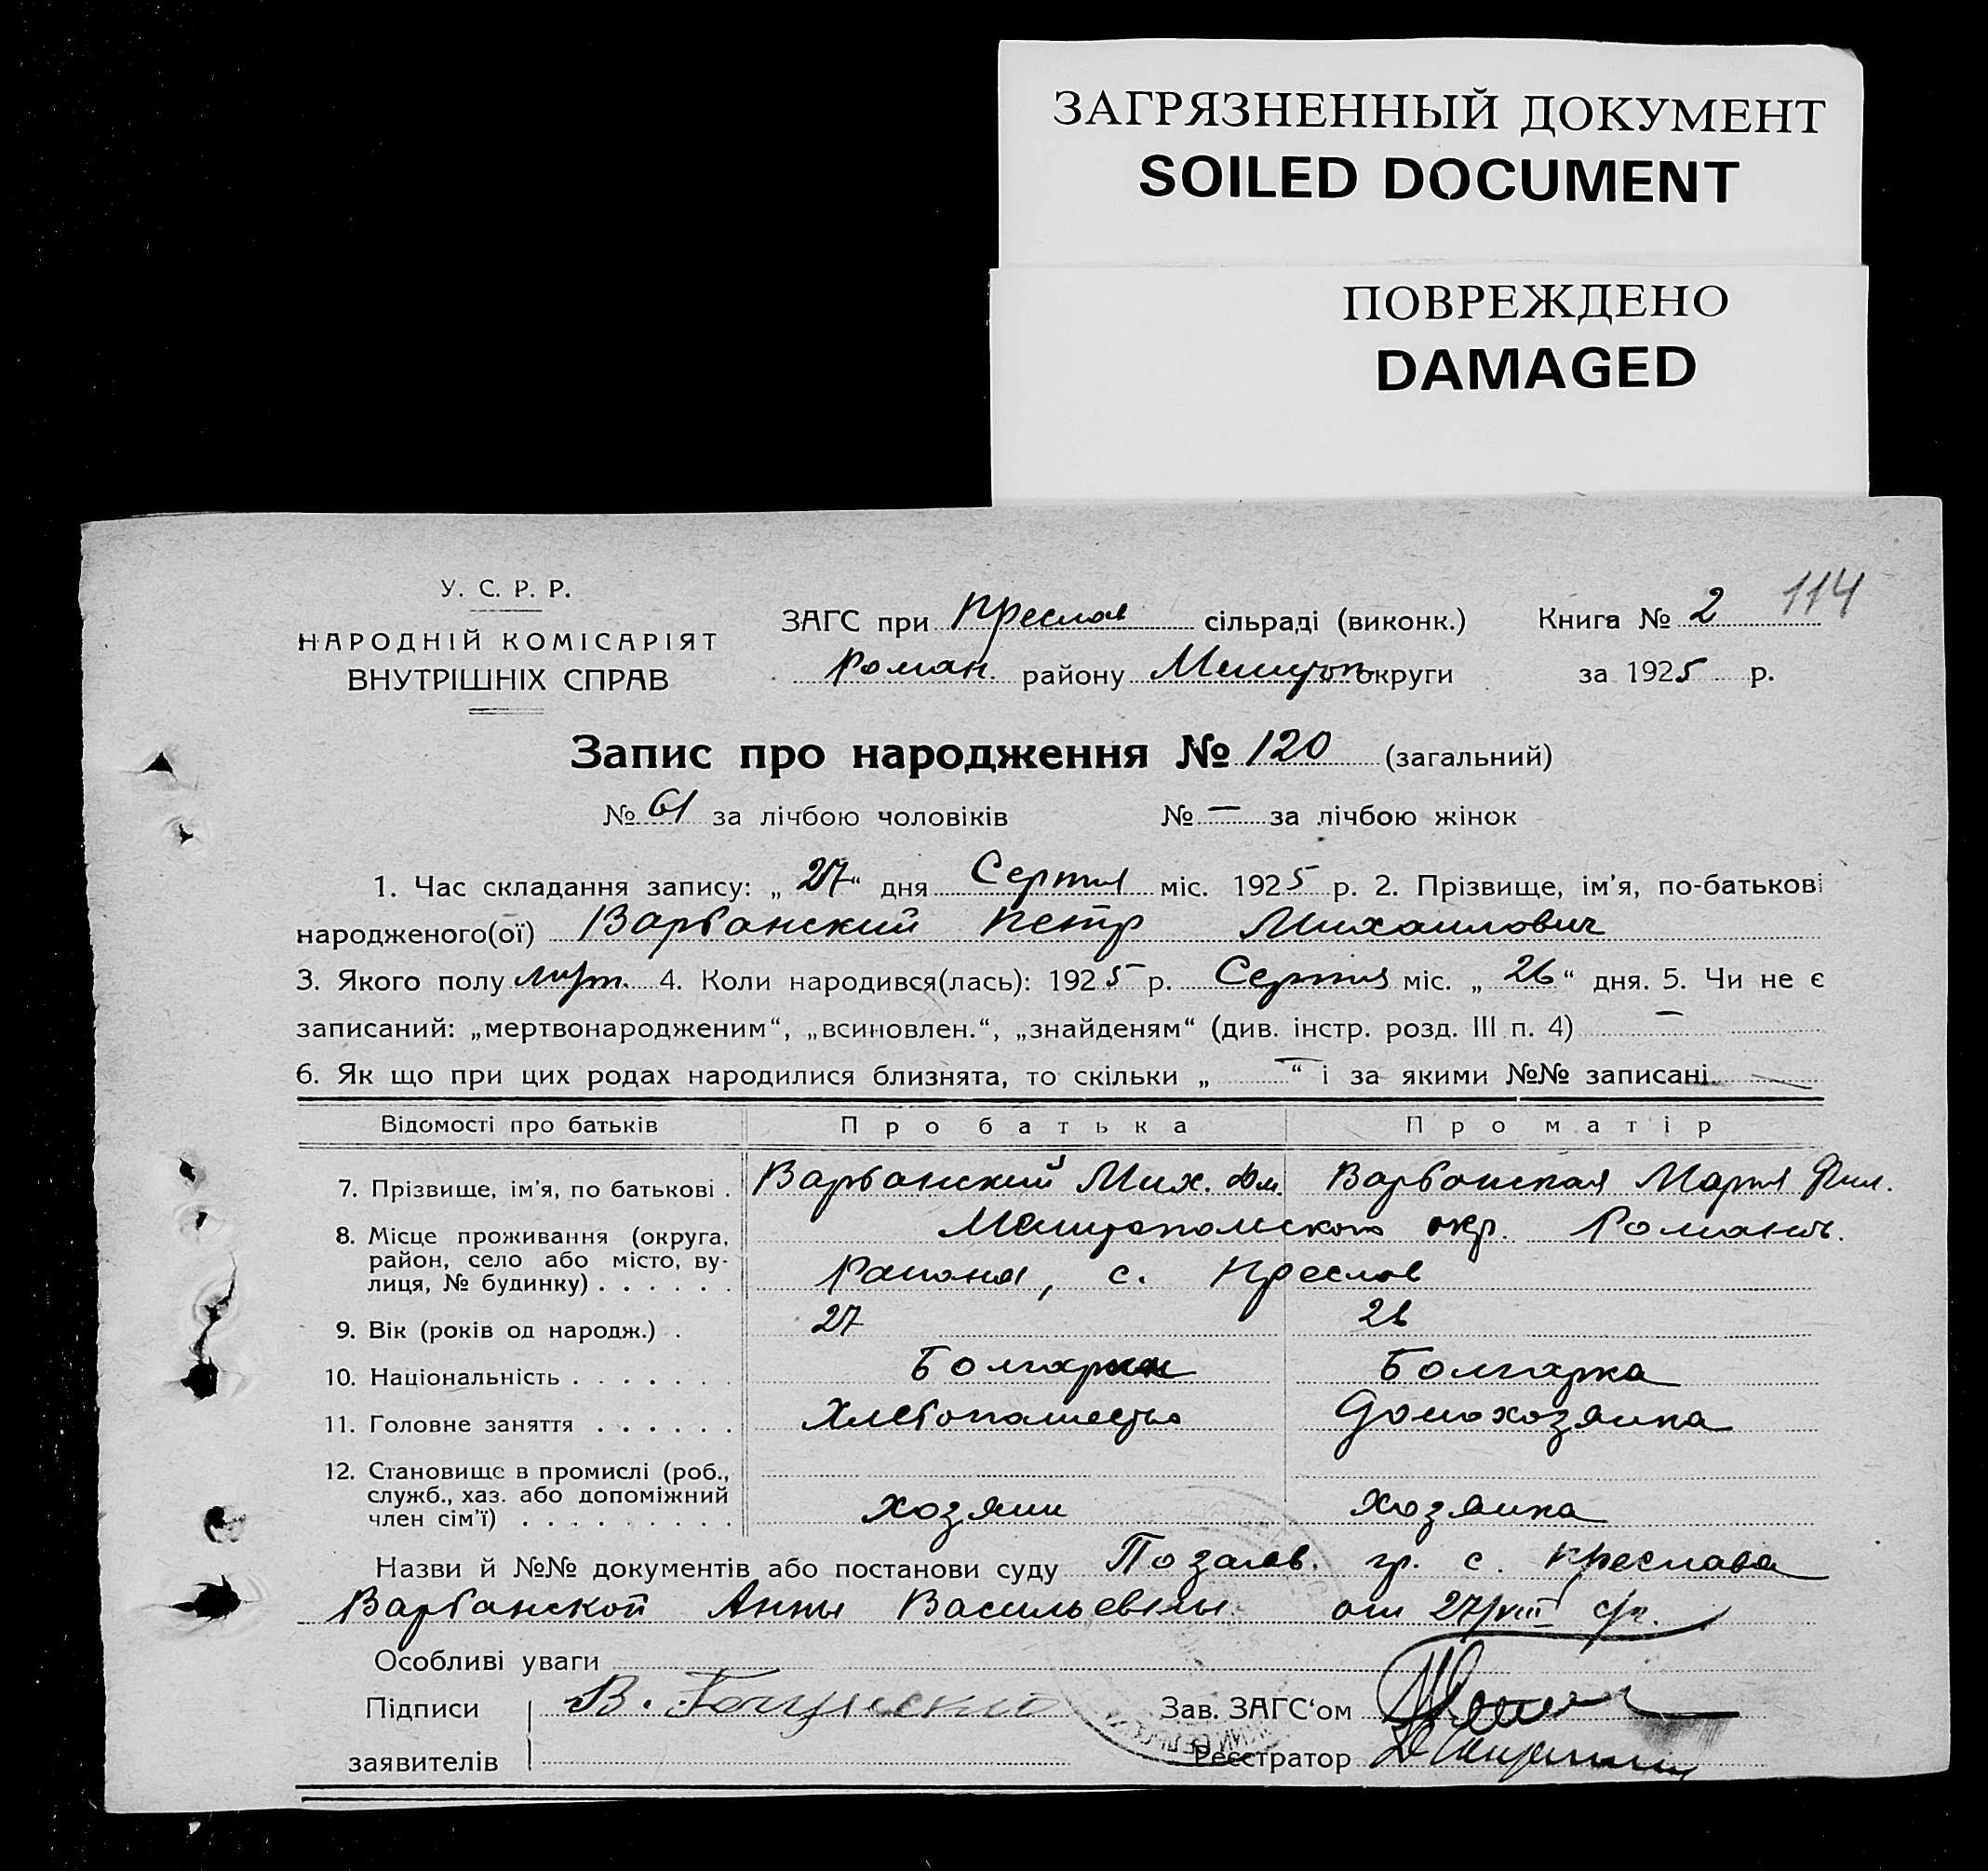 ЗАГРЯЗНЕННЫЙ ДОКУМЕНТ
SOILED DOCUMENT
ПОВРЕЖДЕНО
DAMAGED
114
У. С. Р. Р.
НАРОДНІЙ КОМІСАРІЯТ
ВНУТРІШНІХ СПРАВ
ЗАГС при Преслав сільраді (виконк.) Книга № 2
Роман. району Мелитоп округи за 1925 р.
Запис про народження № 120 (загальний)
№ 61 за лічбою чоловіків № — за лічбою жінок
1. Час складання запису: „27“ дня Серпня міс. 1925 р. 2. Прізвище, ім'я, по-батькові
народженого(ої) Варбанский Петр Михаилович
3. Якого полу муж. 4. Коли народився(лась): 1925 р. Серпня міс. „26“ дня. 5. Чи не є
записаний: „мертвонародженим“, „всиновлен.“, „знайденям“ (див. інстр. розд. III п. 4) —
6. Як що при цих родах народилися близнята, то скільки „—“ і за якими №№ записані —
Відомості про батьків Про батька Про матір
7. Прізвище, ім'я, по батькові . Варбанский Мих. Дм. Варбанская Мария Фил.
8. Місце проживання (округа, Мелитопольского окр. Романов.
район, село або місто, ву-
лиця, № будинку) . . . . . . Района, с. Преслав
9. Вік (років од народж.) . 27 26
10. Національність . . . . . . . Болгарин Болгарка
11. Головне заняття . . . . . . Хлебопашество Домохозяйка
12. Становище в промислі (роб.,
служб., хаз. або допоміжний
член сім'ї) . . . . . . . . . Хозяин Хозяйка
Назви й №№ документів або постанови суду По заяв. гр. с. Преслава
Варбанской Анны Васильевны от 27/VIII с/г.
Особливі уваги
Підписи В.
Зав. ЗАГС'ом
заявителів
Реєстратор